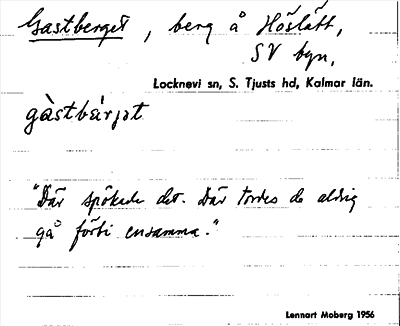 Gastberget, berg å Höslätt,
SV byn,
Locknevi sn, S. Tjusts hd, Kalmar län.
gàstbærjət
"Där spökade det. Där tordes de aldrig
gå förbi ensamma."
Lennart Moberg 1956